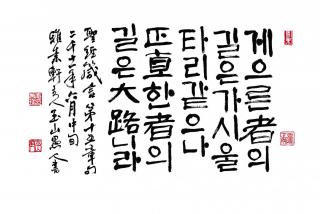 게으른者의
길은가시울
타리같으나
正直한者의
길은大路니라
聖經箴言第十五章句
二千十一年六月中旬